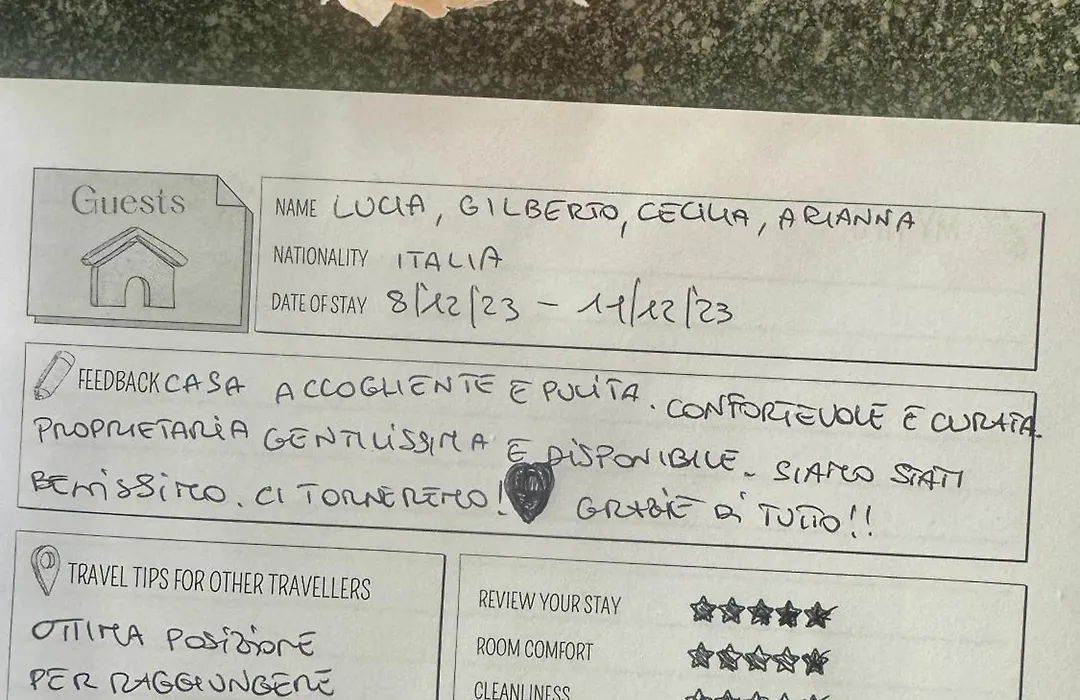 Guests
NAME LUCIA, GILBERTO, CECILIA, ARIANNA
NATIONALITY ITALIA
DATE OF STAY 8/12/23 - 11/12/23
FEEDBACK CASA ACCOGLIENTE E PULITA. CONFORTEVOLE E CURATA.
PROPRIETARIA GENTILISSIMA E DISPONIBILE. SIAMO STATI
BENISSIMO. CI TORNEREMO! GRAZIE DI TUTTO!!
TRAVEL TIPS FOR OTHER TRAVELLERS
OTTIMA POSIZIONE
PER RAGGIUNGERE
REVIEW YOUR STAY
ROOM COMFORT
CLEANLINESS